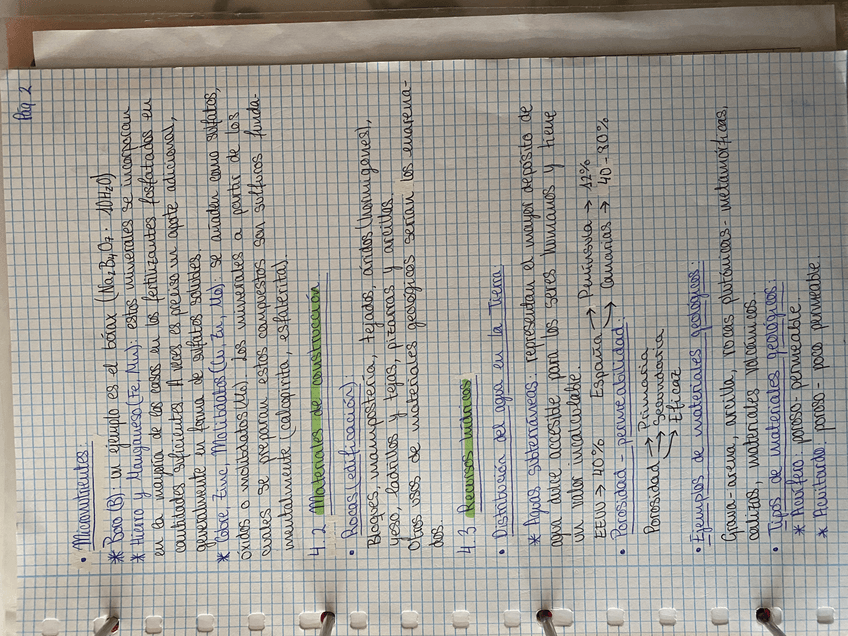 Pág 2
• Micronutrientes:
* Boro (B): un ejemplo es el bórax (Na2B4O7 · 10H2O)
* Hierro y Manganeso (Fe, Mn): estos minerales se incorporan
en la mayoría de los casos en los fertilizantes fosfatados en
cantidades suficientes. A veces es preciso un aporte adicional,
generalmente en forma de sulfatos solubles.
* Cobre, Zinc, Molibdatos (Cu, Zn, Mo): se añaden como sulfatos,
óxidos o molibdatos (Mo). Los minerales a partir de los
cuales se preparan estos compuestos son sulfuros funda-
mentalmente (calcopirita, esfalerita).
4.2 Materiales de construcción
• Rocas (edificación):
Bloques, mampostería, tejados, áridos (hormigones),
yeso, ladrillos y tejas, pizarras y arcillas.
Otros usos de materiales geológicos serían los enarena-
dos
4.3 Recursos hídricos
• Distribución del agua en la Tierra
* Aguas subterráneas: representan el mayor depósito de
agua dulce accesible para los seres humanos y tiene
un valor incalculable.
EEUU → 40% España → Península → 12%
→ Canarias → 40-80%
• Porosidad - permeabilidad:
Porosidad → Primaria
→ Secundaria
→ Eficaz
• Ejemplos de materiales geológicos:
Grava-arena, arcilla, rocas plutónicas-metamórficas,
calizas, materiales volcánicos.
• Tipos de materiales geológicos:
* Acuífero: poroso-permeable
* Acuitardo: poroso-poco permeable